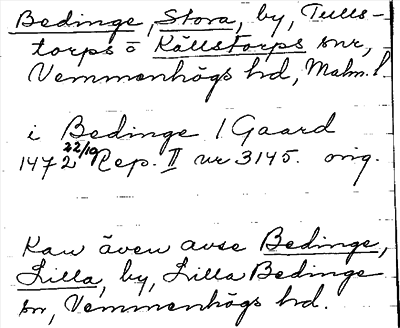 Bedinge, Stora, by, Tulls-
torps o Källstorps snr,
Vemmenhögs hd, Malm. l.
i Bedinge / Gaard
1472 22/10 Rep. II nr 3145. orig.
Kan även avse Bedinge,
Lilla, by, Lilla Bedinge
sn, Vemmenhögs hd.